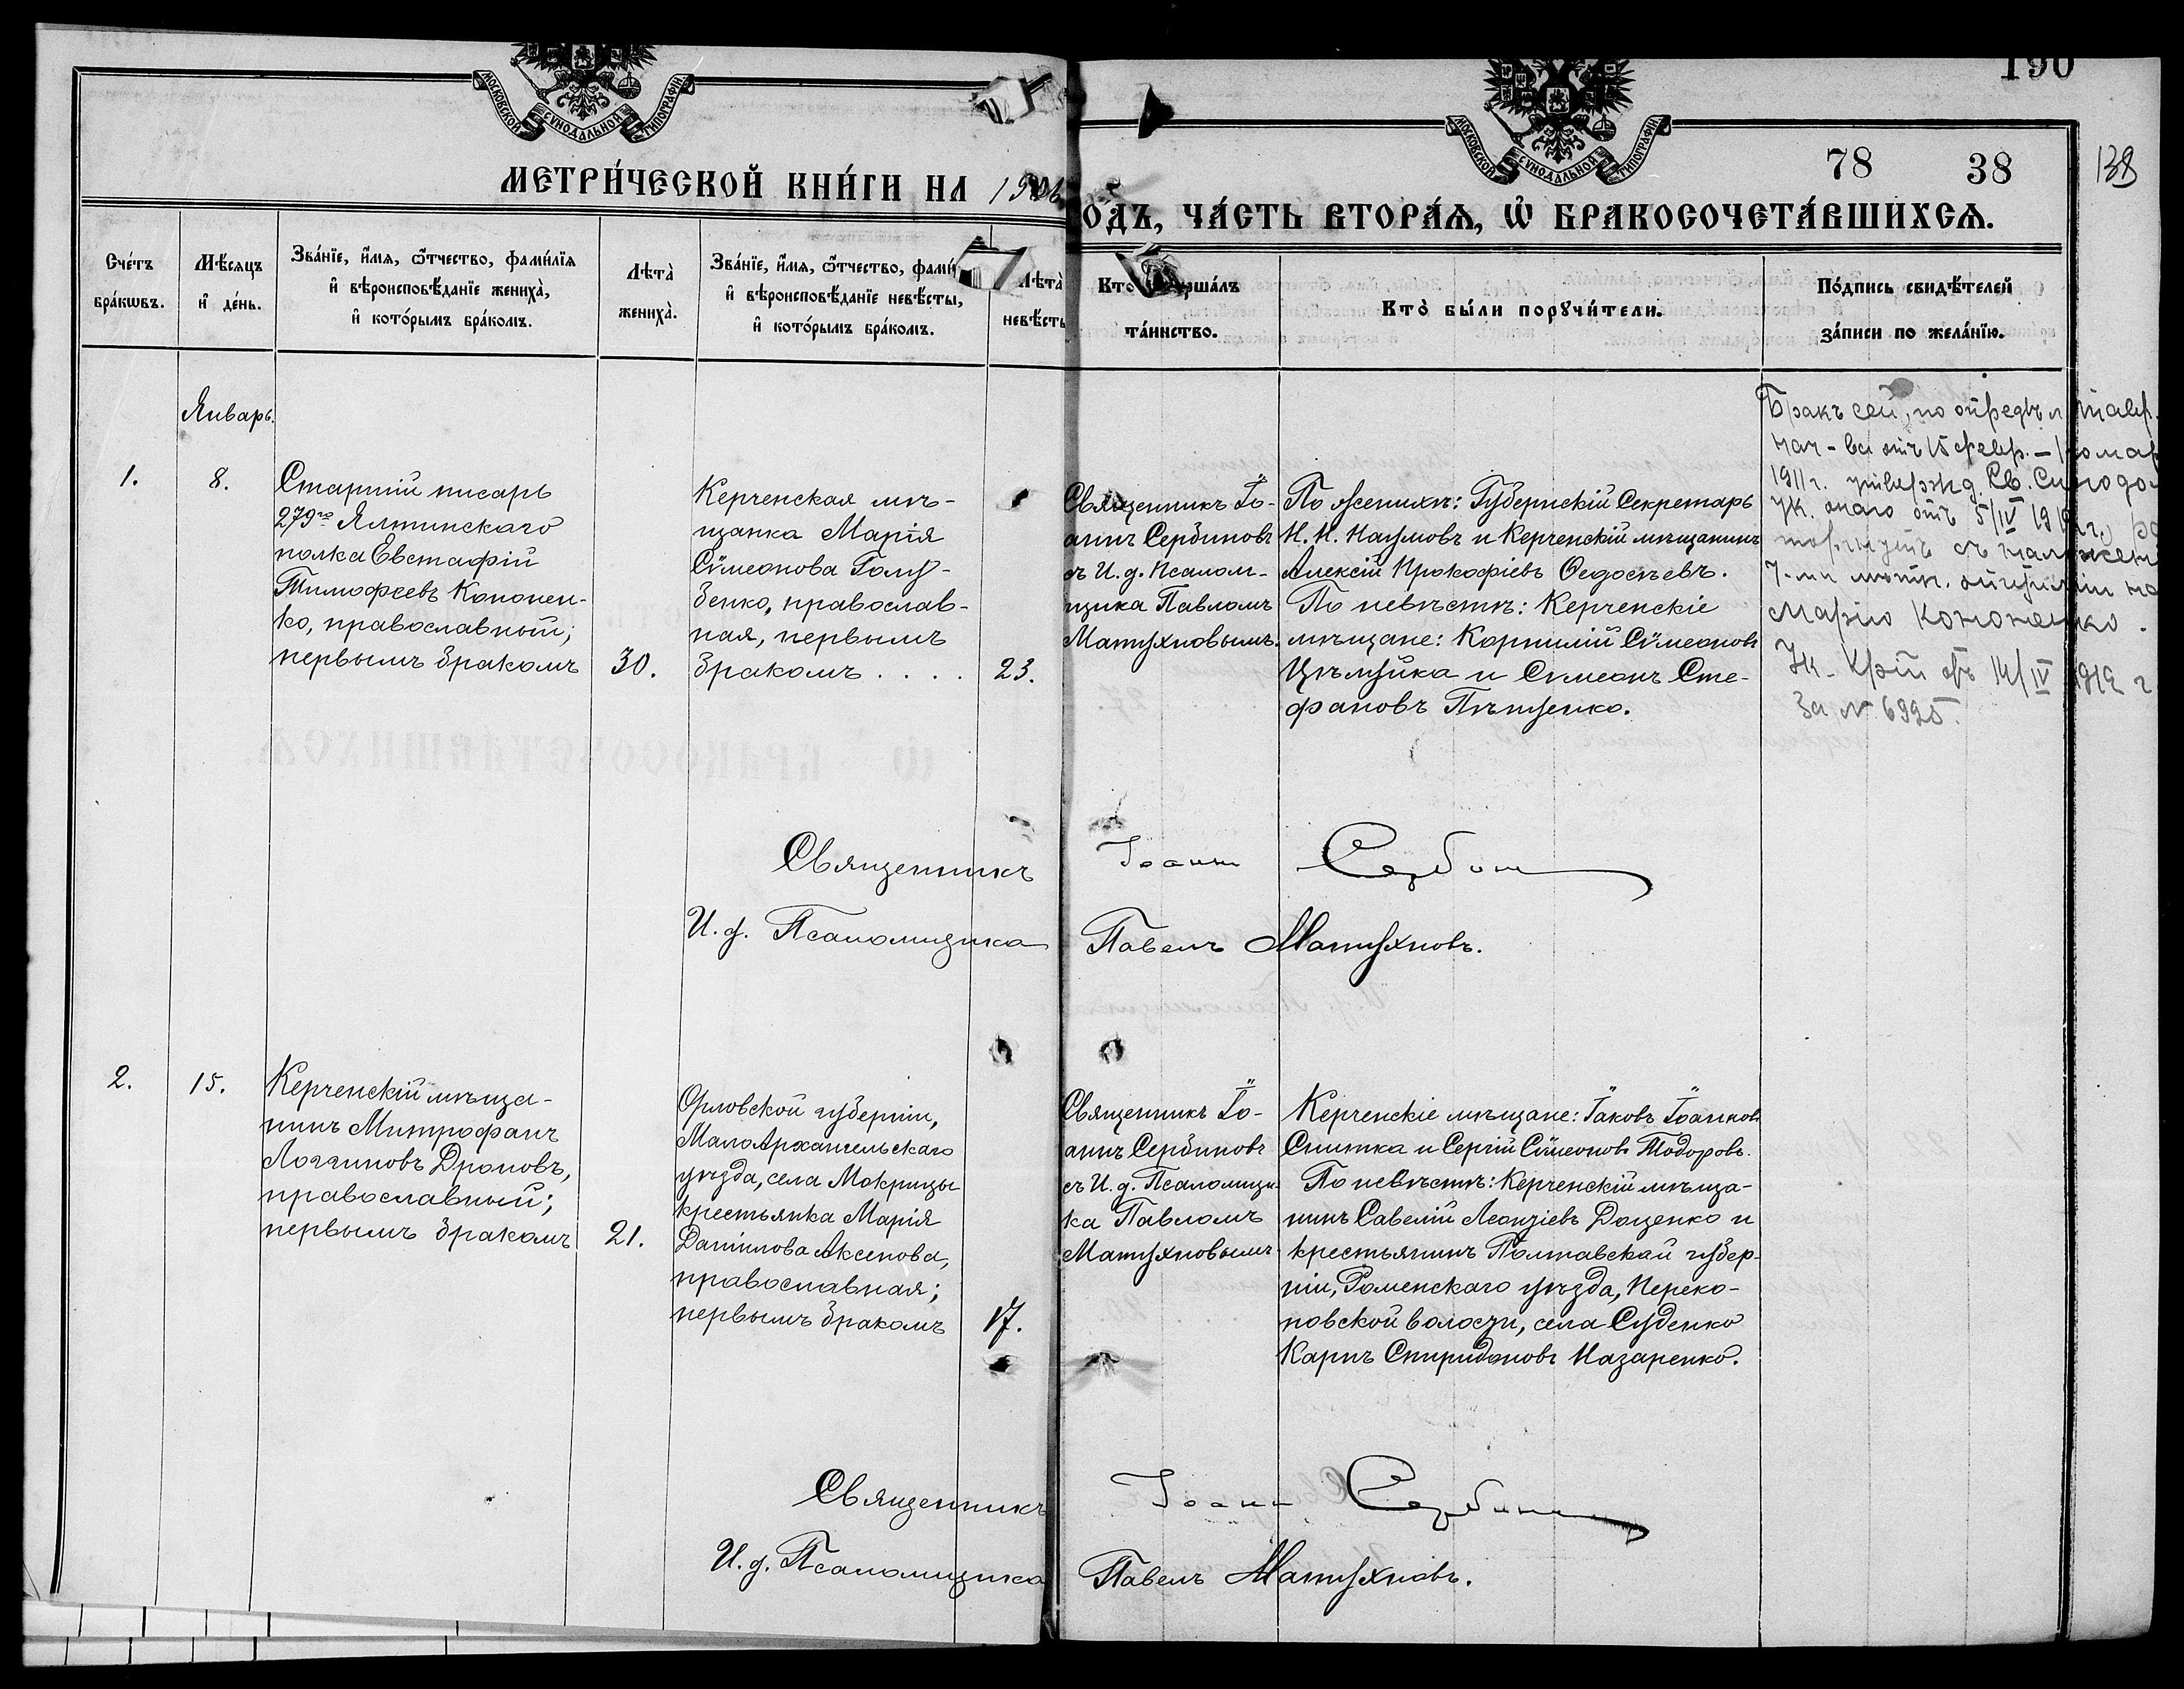 190
78 38 138
МОСКОВСКОЙ СѴНОДАЛЬНОЙ ТИПОГРАФІИ
МОСКОВСКОЙ СѴНОДАЛЬНОЙ ТИПОГРАФІИ
МЕТРИ́ЧЕСКОЙ КНИ́ГИ НА 1906
ОДЪ, ЧА́СТЬ ВТОРА́Ѧ, Ѡ БРАКОСОЧЕТА́ВШИХСѦ.
Сче́тъ
бра́кѡвъ.
Мѣ́сяцъ
и де́нь.
Зва́нїе, и́мя, ѻ́тчество, фами́лїя
и вѣроисповѣ́данїе жениха̀,
и кото́рымъ бра́комъ.
Лѣта̀
жениха̀.
Зва́нїе, и́мя, ѻ́тчество, фами́
и вѣроисповѣ́данїе невѣ́сты,
и кото́рымъ бра́комъ.
Лѣта̀
невѣ́сты
Кто̀
та́инство.
Кто̀ бы́ли порꙋчи́тели.
По́дпись свидѣ́телей
за́писи по жела́нїю.
Январь.
1.
8.
Старшій писарь
279го Ялтинскаго
полка Евстафій
Тимофеевъ Кононен-
ко, православный;
первымъ бракомъ
30.
Керченская мѣ-
щанка Марія
Сѵмеонова Голу-
бенко, православ-
ная, первымъ
бракомъ . . . .
23.
Священникъ Іо-
аннъ Сербиновъ
съ И. д. Псалом-
щика Павломъ
Матухновымъ.
По женихѣ: Губернскій Секретарь
Н. Н. Наумовъ и Керченскій мѣщанинъ
Алексій Прокофіевъ Ѳедосѣевъ.
По невѣстѣ: Керченскіе
мѣщане: Корнилій Сѵмеоновъ
Цѣмуйка и Симеонъ Сте-
фановъ Пѣтченко.
Бракъ сей, по опредѣл. Тавр.
нач-ва отъ 15 февр.
1911 г. утвержд. Св. Синодо
Ук. онаго отъ 5/IV 1912 г.,
7-ми
Марію Кононенко.
Ук. 14/IV 1912 г
За № 6925.
Священникъ Іоаннъ Сербин
И. д. Псаломщика Павелъ Матухновъ.
2.
15.
Керченскій мѣща-
нинъ Митрофанъ
Логгиновъ Дроновъ,
православный;
первымъ бракомъ
21.
Орловской губерніи,
МалоАрхангельскаго
уѣзда, села Мокрицы
крестьянка Марія
Даніилова Аксенова,
православная;
первымъ бракомъ
17.
Священникъ Іо-
аннъ Сербиновъ
съ И. д. Псаломщи-
ка Павломъ
Матухновымъ.
Керченскіе мѣщане: Іаковъ Іоанновъ
Снитка и Сергій Сѵмеоновъ Тодоровъ.
По невѣстѣ: Керченскій мѣща-
нинъ Савелій Леонтіевъ Доценко и
крестьянинъ Полтавской губер-
ніи, Роменскаго уѣзда, Переко-
повской волости, села Суденко
Карпъ Спиридоновъ Назаренко.
Священникъ Іоаннъ Сербин
И. д. Псаломщика Павелъ Матухновъ.